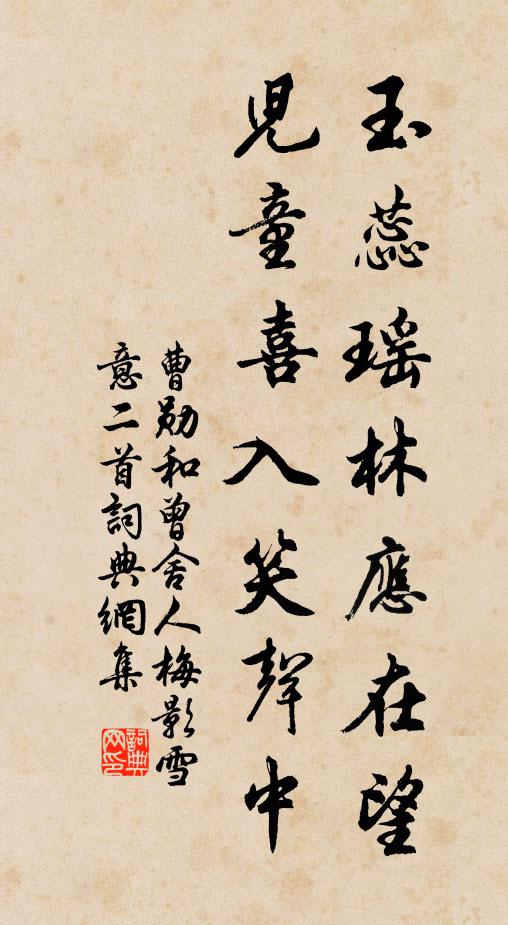 玉蕊瑶林應在望
兒童喜入笑聲中
曹勛和曾舍人梅影雪
意二首詞典網集
詞典
网印